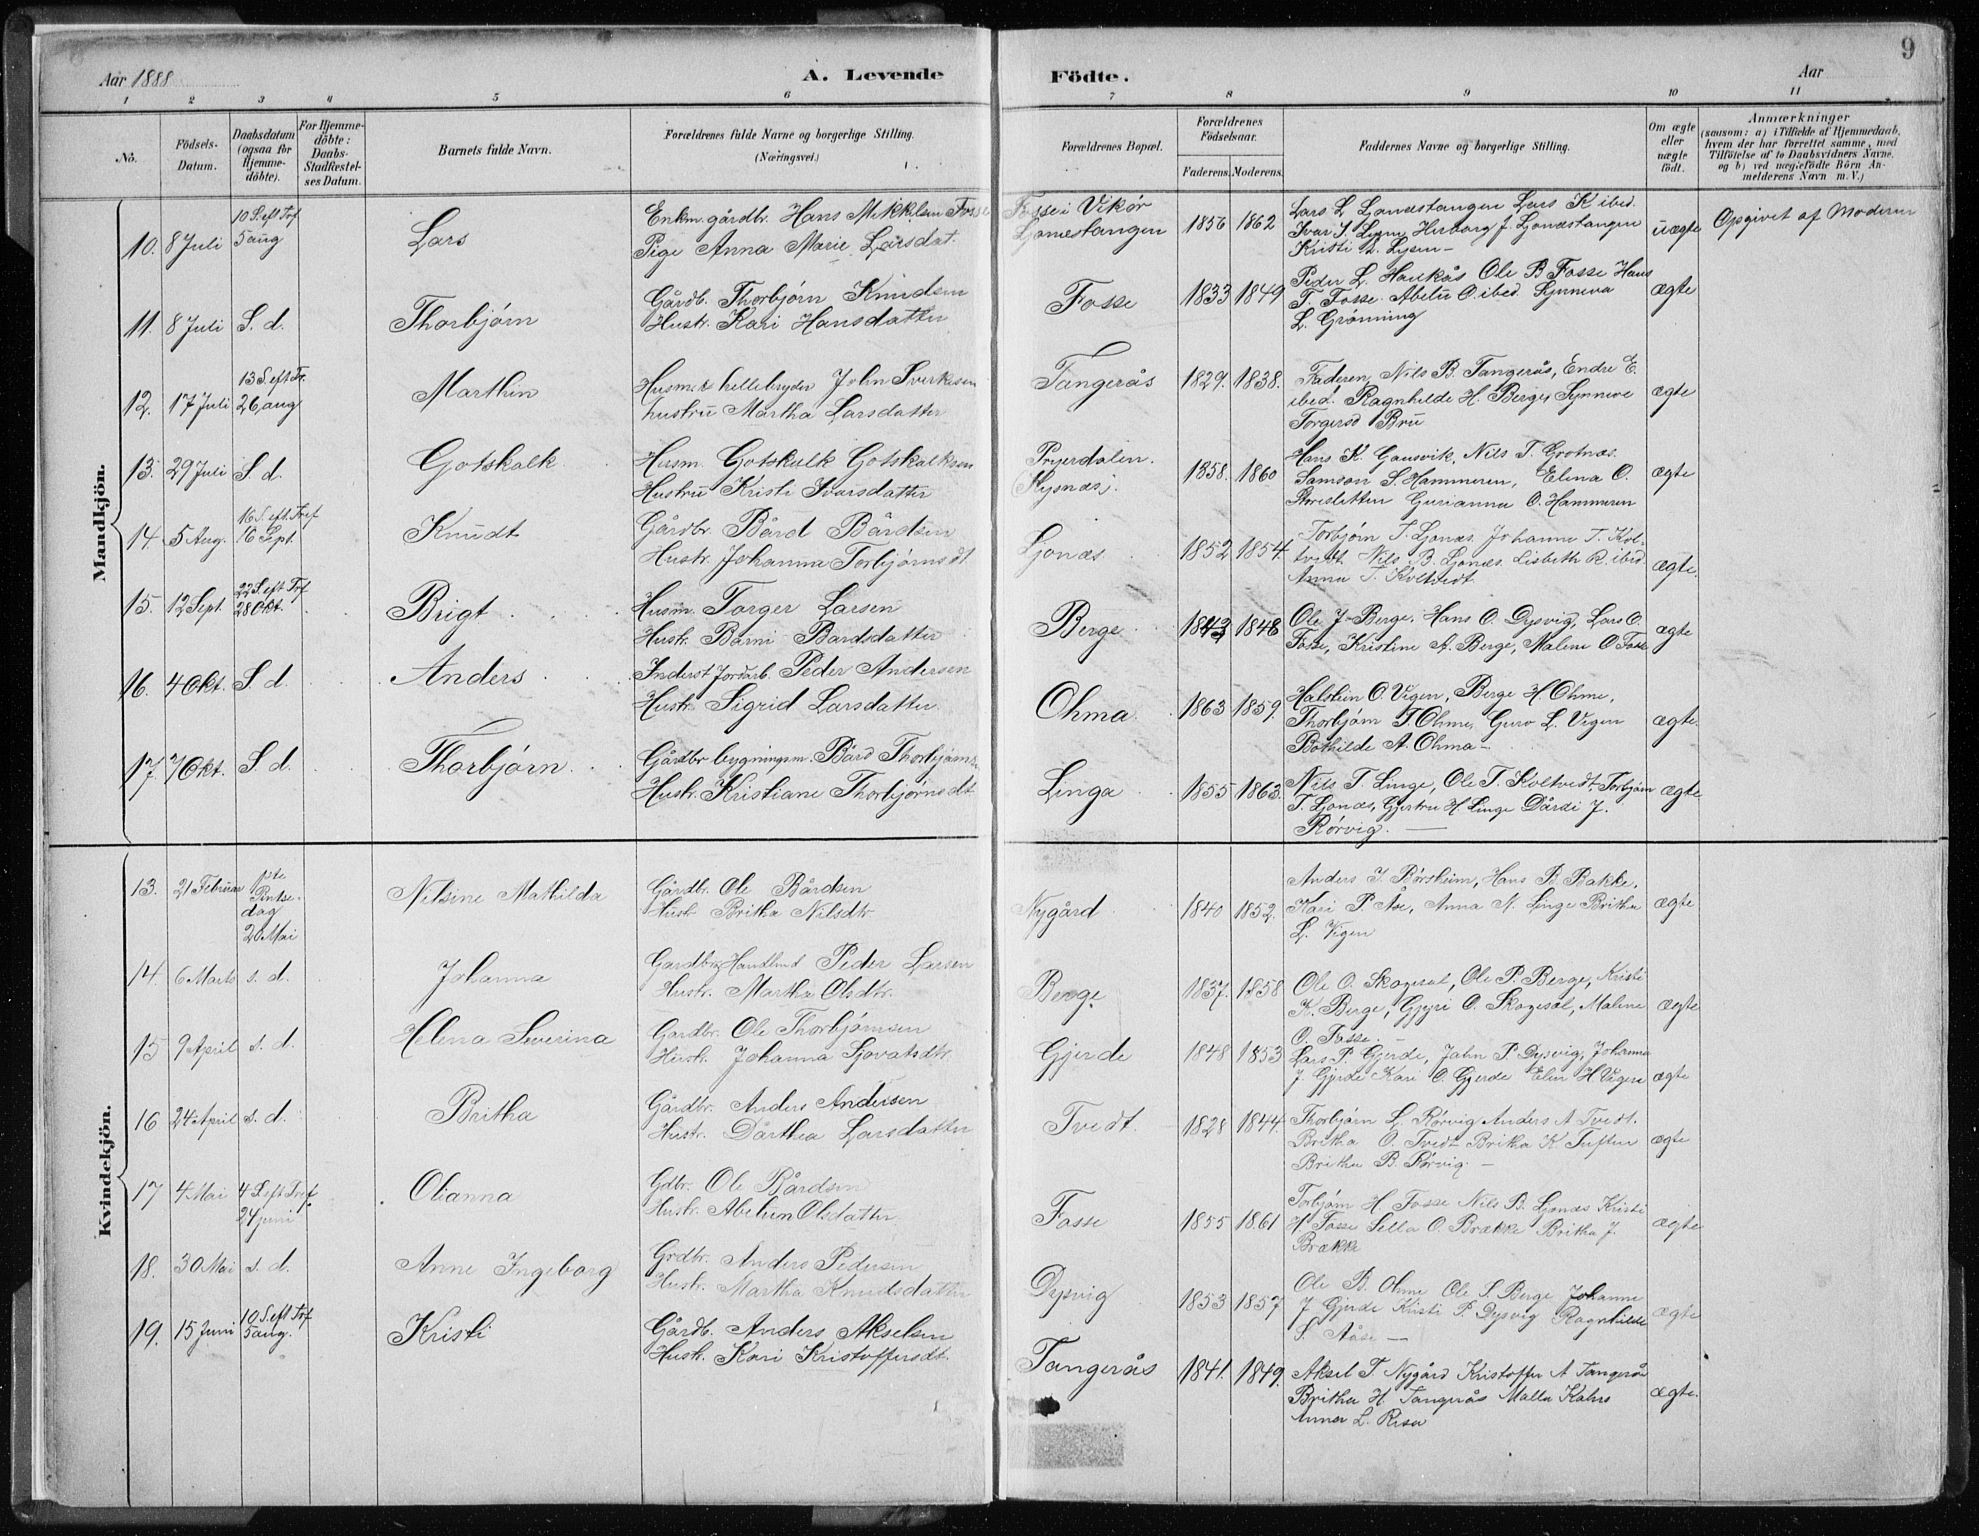 9
Aar 1888
A. Levende
Födte.
Aar
1 2 3 4 5 6 7 8 9 10 11
No.
Födsels-Datum.
Daabsdatum (ogsaa for Hjemme-döbte).
For Hjemme-döbte: Daabs-Stadfæstel-ses Datum.
Barnets fulde Navn.
Forældrenes fulde Navne og borgerlige Stilling.
(Næringsvei.)
Forældrenes Bopæl.
Forældrenes Födselsaar.
Faderens. Moderens.
Faddernes Navne og borgerlige Stilling.
Om ægte eller uægte födt.
Anmærkninger
(saasom: a) i Tilfælde af Hjemmedaab,
hvem der har forrettet samme, med
Tilföielse af to Daabsvidners Navne,
og b) ved uægtefödte Börn An-
melderens Navn m. V.)
Mandkjön.
10. 8 Juli 10 S. eft Tref 5 aug Lars
Enkm. gårdbr. Hans Mikkelsen Fosse
Pige Anna Marie Larsdat.
Fosse i Vikör
Ljonestangen 1856 1862
Lars L Ljonæstangen Lars K ibid.
Ivar S. Herborg J. Ljonæstangen
Kristi L. Lysen -
uægte Opgivet af Moderen
11. 8 Juli S. d. Thorbjørn
Gårdb. Thorbjørn Knudsen
Hustr. Kari Hansdatter
Fosse 1833 1849
Peder L. Haukås Ole B Fosse Hans
T. Fosse. Abelu O. ibed. Synneva
L. Grønning
ægte
12. 17 Juli 13 S. eft Tr. 26 aug Marthin
Husm. & hellebryder John Sverkesen
hustru Martha Larsdatter
Tangerås 1829. 1838.
Faderen, Nils B. Tangerås, Endre E.
ibed. Ragnhilde H. Berge, Synneve
Torgersd Bru
ægte
13. 29 Juli S. d. Gotskalk
Husm. Gotskalk Gotskalksen
Hustru Kristi Ivarsdatter
1858. 1860
Hans K. Gausvik, Nils T. Grotnæs.
Samson S Hammeren, Elena O.
Gurianna O. Hammeren
ægte
14. 5 Aug. 16 S. eft. Tref 16 Sept. Knudt
Gårdbr. Bård Bårdsen
Hustr. Johanna Torbjørnsdt.
Ljonæs 1852 1854.
Torbjørn T. Ljonæs. Johanne T. Kol-
tvedt. Nils B. Ljonæs. Lisbeth R. ibid.
Anna T. Koltvedt.
ægte.
15. 12 Sept. 22 S. eft Trf 28 Okt. Brigt
Husm. Torger Larsen
Hustr. Barni Bardsdatter
Berge 1843 1848
Ole J. Berge. Hans O. Dysvig, Lars O.
Fosse, Kristine A. Berge, Malene O Fosse
ægte
16. 4 Okt. S. d. Anders
Inderst Jordarb. Peder Andersen
Hustr. Sigrid Larsdatter
Ohma. 1863 1859.
Halstein O. Vigen, Berge H Ohme,
Thorbjørn T. Ohme, Guro L. Vigen
Bothilde A. Ohma -
ægte
17. 7 Okt. S. d. Thorbjørn
Gårdbr bygningsm. Bård Thorbjørns.
Hustr. Kristiane Thorbjørnsdt
Linga 1855 1863.
Nils T. Linge, Ole T. Koltvedt Torbjørn
T. Ljonæs, Gjertru H. Linge Dårdi J.
Rørvig. -
ægte
Kvindekjön.
13. 21 Februar 1ste Pintse-dag 20 Mai Nilsine Mathilda
Gårdbr. Ole Bårdsen
Hustr. Britha Nilsdtr.
Nygård 1840 1852.
Anders I. Børsheim, Hans B. Bakke.
Kari P. Åse, Anna N. Linge Britha
L. Vigen
ægte
14. 6 Marts s. d. Johanna
Gardbr. Handlend Peder Larsen
Hustr. Martha Olsdtr.
Berge 1837. 1858
Ole O. Skogesal, Ole P. Berge, Kristi
K. Berge, Gjyri O. Skogesal, Malene
O. Fosse. -
ægte
15 9 April s. d. Helena Severina
Gardbr. Ole Thorbjørnsen
Hustr. Johanna Sjovatsdtr.
Gjerde 1848 1853
Lars P. Gjerde, John P. Dysvig, Johanna
J. Gjerde Kari O. Gjerde Elin H Vigen
ægte
16 24 April s. d. Britha
Gårdbr. Anders Andersen
Hustr. Dårthea Larsdatter
Tvedt. 1828 1844.
Thorbjørn L. Rørvig Anders A Tvedt.
Britha O. Tvedt Britha K Tuften
Britha B. Rørvig. -
ægte
17 4 Mai 4 S. eft Tref. 24 juni Olianna
Gdbr. Ole Bårdsen
Hustr. Abelun Olsdatter
Fosse 1855 1861
Torbjørn H Fosse Nils B. Ljonæs Kristi
H Fosse Sella O. Brække Britha J.
Brække
ægte
18. 30 Mai s. d. Anne Ingeborg
Grdbr. Anders Pedersen
Hustr. Martha Knudsdatter
Dysvig 1853 1857
Ole B. Ohme Ole S. Berge Johanne
J Gjerde Kristi P. Dysvig Ragnhilde
S. Aåse -
ægte
19. 15 Juni 10 S. eft Trf 5 aug. Kristi
Gårdb. Anders Akselsen
Hustr. Kari Kristoffersdt.
Tangerås 1841. 1849.
Aksel T. Nygård Kristoffer A Tangerås
Britha H Tangerås Malla Kahrs
Anna L. Risa
ægte.